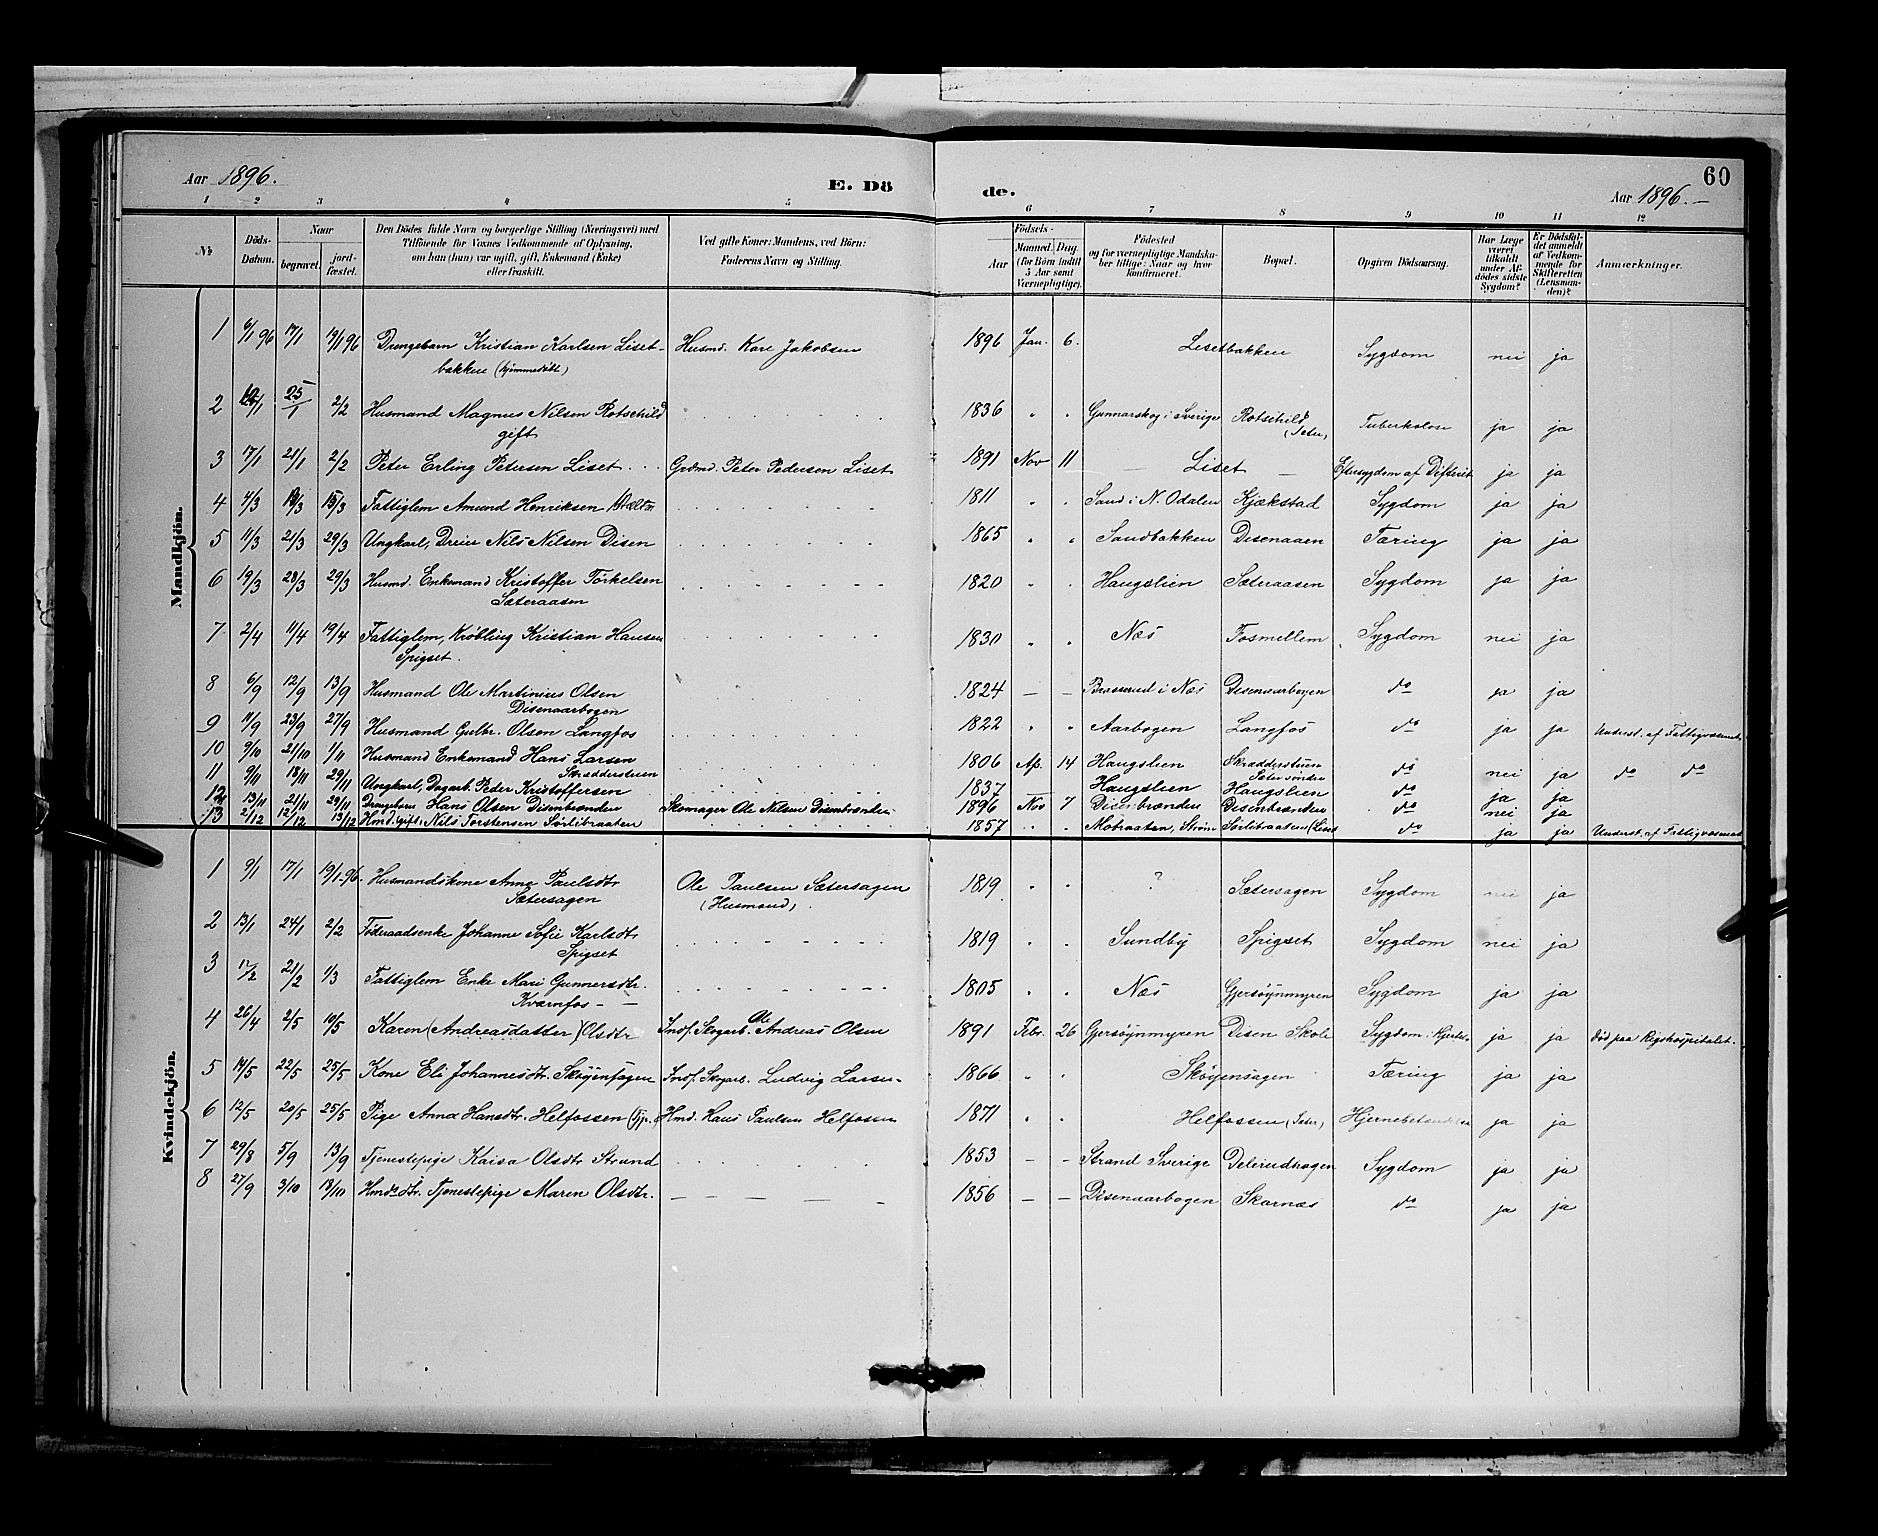 60
Aar 1896.
E. Dö
de.
Aar 1896.
1 2 3 4 5 6 7 8 9 10 11 12
№
Döds-Datum.
Naar
begravet.
jord-fæstet.
Den Dödes fulde Navn og borgerlige Stilling (Næringsvei) med
Tilföiende for Voxnes Vedkommende af Oplysning,
om han (hun) var ugift, gift, Enkemand (Enke)
eller fraskilt.
Ved gifte Koner: Mandens, ved Börn:
Faderens Navn og Stilling.
Födsels-
Aar
Maaned. Dag.
(for Börn indtil
5 Aar samt
Værnepligtige).
Födested
og for værnepligtige Mandska-
ber tillige: Naar og hvor
konfirmeret.
Bopæl.
Opgiven Dödsaarsag.
Har Læge
været
tilkaldt
under Af-
dödes sidste
Sygdom?
Er Dödsfal-
det anmeldt
af Vedkom-
mende for
Skifteretten
(Lensman-
den)?
Anmærkninger.
Mandkjön.
1 6/1 96 17/1 19/1 96 Drengebarn Kristian Karlsen Liset- Husmd. Kare Jakobsen 1896 Jan. 6. Lisetbakken Sygdom nei ja
bakken (hjemmedöbt)
2 25/1 2/2 Husmand Magnus Nilsen Rotschild 1836 " " Gunnarskog i Sverige Rotschild (Sæter) Tuberkolose ja ja
gift
3 17/1 21/1 2/2 Peter Erling Petersen Liset Grdmd. Peter Pedersen Liset 1891 Nov 11 — Liset — Eftersygdom af Difterit ja ja
4 4/3 13/3 15/3 Fattiglem Amund Henriksen 1811 " " Sand i N. Odalen Kjækstad Sygdom ja ja
5 11/3 21/3 29/3 Ungkarl, Dreier Nils Nilsen Disen 1865 " " Sandbakken Disenaaen Tæring ja ja
6 19/3 28/3 29/3 Husmd. Enkemand Kristoffer Törkelsen 1820 " " Haugslien Sæteraasen Sygdom ja ja
Sæteraasen
7 2/4 11/4 19/4 Fattiglem, Kröbling Kristian Hansen 1830 " " Næs Fosmellem Sygdom nei ja
Spigset.
8 6/9 12/9 13/9 Husmand Ole Martinius Olsen 1824 — — Brasserud i Næs Disenaarbogen do ja ja
Disenaarbogen
9 11/9 23/9 27/9 Husmand Gulbr. Olsen Langfos 1822 " " Aarbogen Langfos do ja ja Underst. af Fattigvæsenet
10 9/10 21/10 1/11 Husmand Enkemand Hans Larsen 1806 Ap. 14 Haugslien Skradderstuen do nei ja do do
Skradderstuen Sæter söndre
11 9/11 18/11 29/11 Ungkarl, Dagarb. Peder Kristoffersen 1837 — Haugslien Haugslien do ja ja
12 13/11 21/11 29/11 Drengebarn Hans Olsen Disenbrænden Skomager Ole Nilsen Disenbrænden 1896 Nov 7 Disenbrænden Disenbrænden do nei ja
13 2/12 12/12 13/12 Hmd. gift. Nils Torstensen Sörlibraaten 1857 " " Motraaten, Ström Sörlibraaten (Liset do ja ja Underst. af Fattigvæsenet
Kvindekjön.
1 9/1 17/1 19/1-96. Husmandskone Anna Paulsdtr Ole Paulsen Sætersagen 1819 " " ? Sætersagen Sygdom nei ja
Sætersagen (Husmand)
2 13/1 24/1 2/2 Föderaadsenke Johanne Sofie Karlsdtr 1819 " " Sundby Spigset Sygdom nei ja
Spigset
3 12/2 21/2 1/3 Fattiglem Enke Mari Gunnersdtr. 1805 " " Næs Gjersöynmyren Sygdom ja ja
Kværnfos - -
4 26/4 2/5 10/5 Karen (Andreasdatter) Olsdtr Indf. Skogarb. Ole Andreas Olsen 1891 Febr. 26 Gjersöynmyren Disen Skole Sygdom i Hjertet ja ja död paa Rigshospitalet.
5 14/5 22/5 25/5 Kone Eli Johannesdtr. Sköyensagen Indf. Skogarb. Ludvig Larsen 1866 " " Sköyensagen Tæring ja ja
6 12/5 20/5 25/5 Pige Anna Hansdtr. Helfossen (Tjp.) Hmd. Hans Paulsen Helfossen 1871 " " Helfossen (Sæter) Hjernebetændelse ja ja
7 29/8 5/9 13/9 Tjenestepige Kaisa Olsdtr Strand 1853 — — Strand Sverige Delerudhagen Sygdom ja ja
8 27/9 3/10 18/10 Hmds dtr. Tjenestepige Maren Olsdtr. 1856 — — Disenaarbogen Skarnæs do ja ja